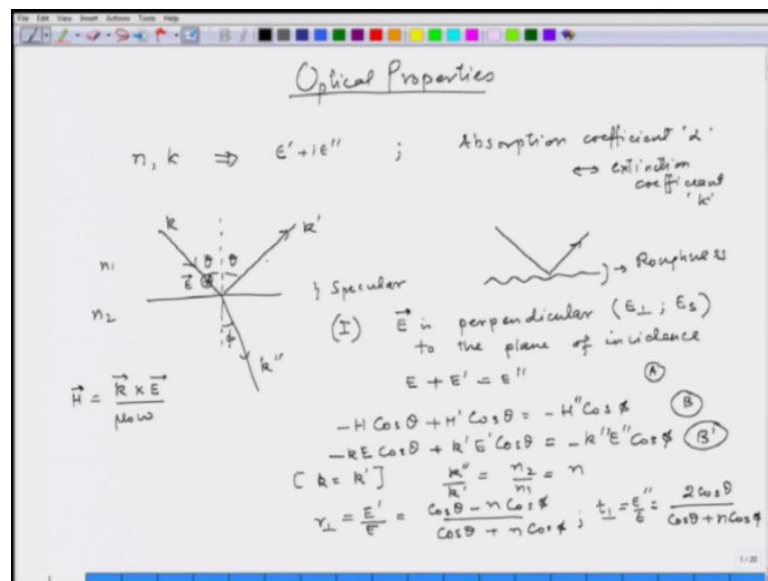 File Edit View Insert Actions Tools Help
Optical Properties
n, k ⇒ ε' + iε'' ; Absorption coefficient 'α'
↔ extinction
coefficient
'k'
k
k'
θ θ
n1
E
n2
φ
k''
} Specular
→ Roughness
(I) E is perpendicular (E⊥ ; Es)
to the plane of incidence
E + E' = E'' (A)
H = k × E / μ0ω
-H Cosθ + H' Cosθ = -H'' Cosφ (B)
-kE Cosθ + k'E' Cosθ = -k''E'' Cosφ (B')
[k = k'] k''/k' = n2/n1 = n
r⊥ = E'/E = cosθ - n Cosφ / cosθ + n Cosφ ; t⊥ = E''/E = 2cosθ / cosθ + n cosφ
1 / 20